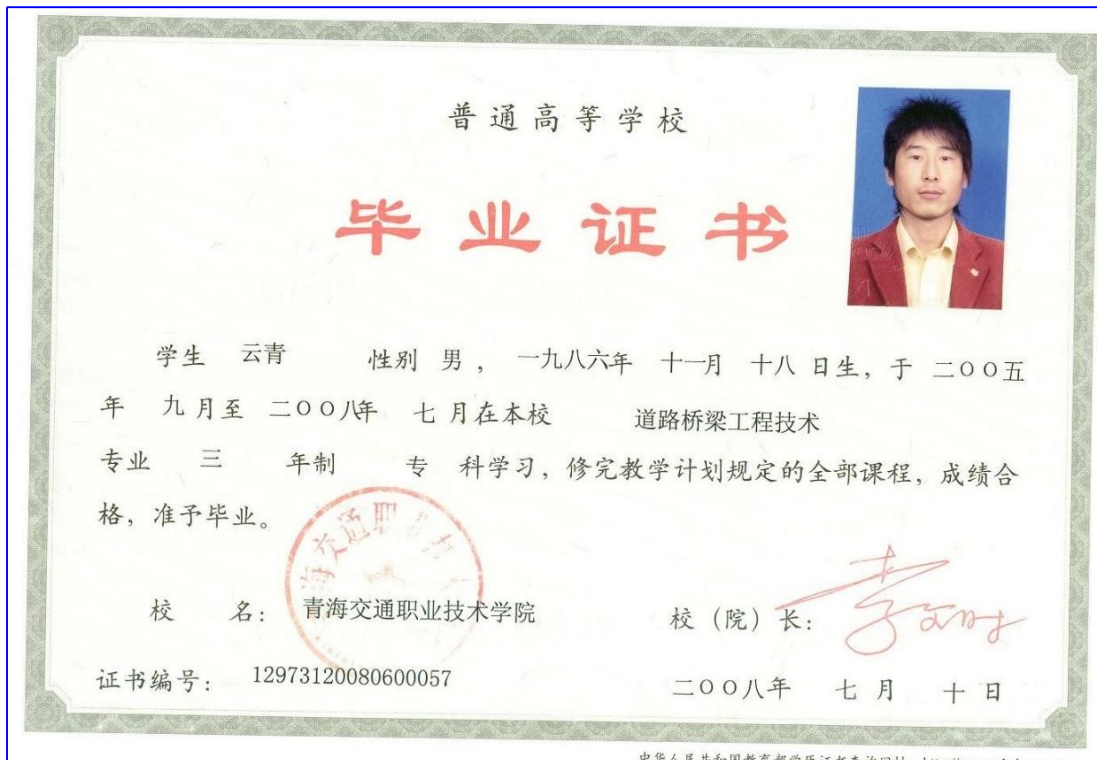 普通高等学校
毕业证书
学生 云青 性别 男，一九八六年 十一月 十八 日生，于 二〇〇五
年 九月至 二〇〇八年 七月在本校 道路桥梁工程技术
专业 三 年制 专 科学习，修完教学计划规定的全部课程，成绩合
格，准予毕业。
海交通职业技
校 名：青海交通职业技术学院 校（院）长：
证书编号：12973120080600057 二〇〇八年 七月 十日
中华人民共和国教育部学历证书查询网址